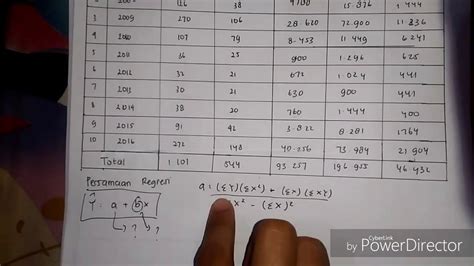 38 15.876 1.444
3 2009 270 106 28.620 72.900 11.836
4 2010 107 79 8.453 11.449 6.241
5 2011 36 25 900 1.296 625
6 2012 32 21 672 1.024 441
7 2013 30 21 630 900 441
8 2014 38 20 760 1.444 400
9 2015 91 42 3.822 8.281 1764
10 2016 272 148 40.256 73.984 21.904
Total 1.101 544 93.257 196.955 46.432
Persamaan Regresi
Ŷ = a + bx
? ?
a : (ΣY)(ΣX²) + (ΣX)(ΣXY)
x² - (Σx)²
CyberLink
by PowerDirector